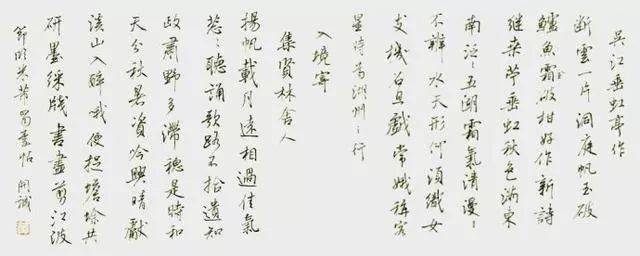 吴江垂虹亭作
断雲一片洞庭帆玉破
鱸魚霜破柑好作新詩
继桑苧垂虹秋色满東
南泛〻五湖霜氣清漫〻
不辨水天形何須織女
支機石且戲常娥稱客
星時為湖州之行
入境寄
集賢林舍人
揚帆載月遠相過佳氣
葱〻聽誦歌路不拾遺知
政肅野多滯穗是時和
天分秋暑資吟興晴獻
溪山入醉哦便捉蟾蜍共
研墨綵牋書盡剪江波
節臨米芾蜀素帖 開誠